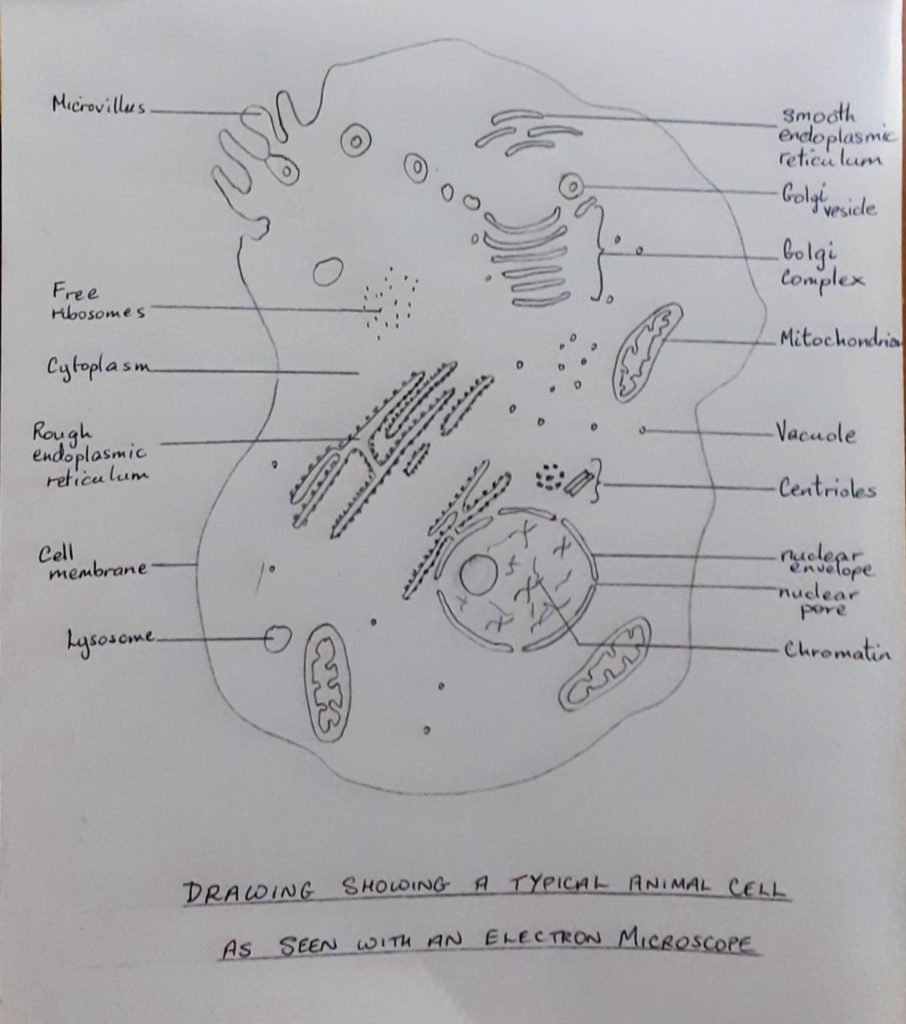 Microvillus
Free
ribosomes
Cytoplasm
Rough
endoplasmic
reticulum
Cell
membrane
Lysosome
smooth
endoplasmic
reticulum
Golgi
vesicle
Golgi
complex
Mitochondria
Vacuole
Centrioles
nuclear
envelope
nuclear
pore
Chromatin
DRAWING SHOWING A TYPICAL ANIMAL CELL
AS SEEN WITH AN ELECTRON MICROSCOPE